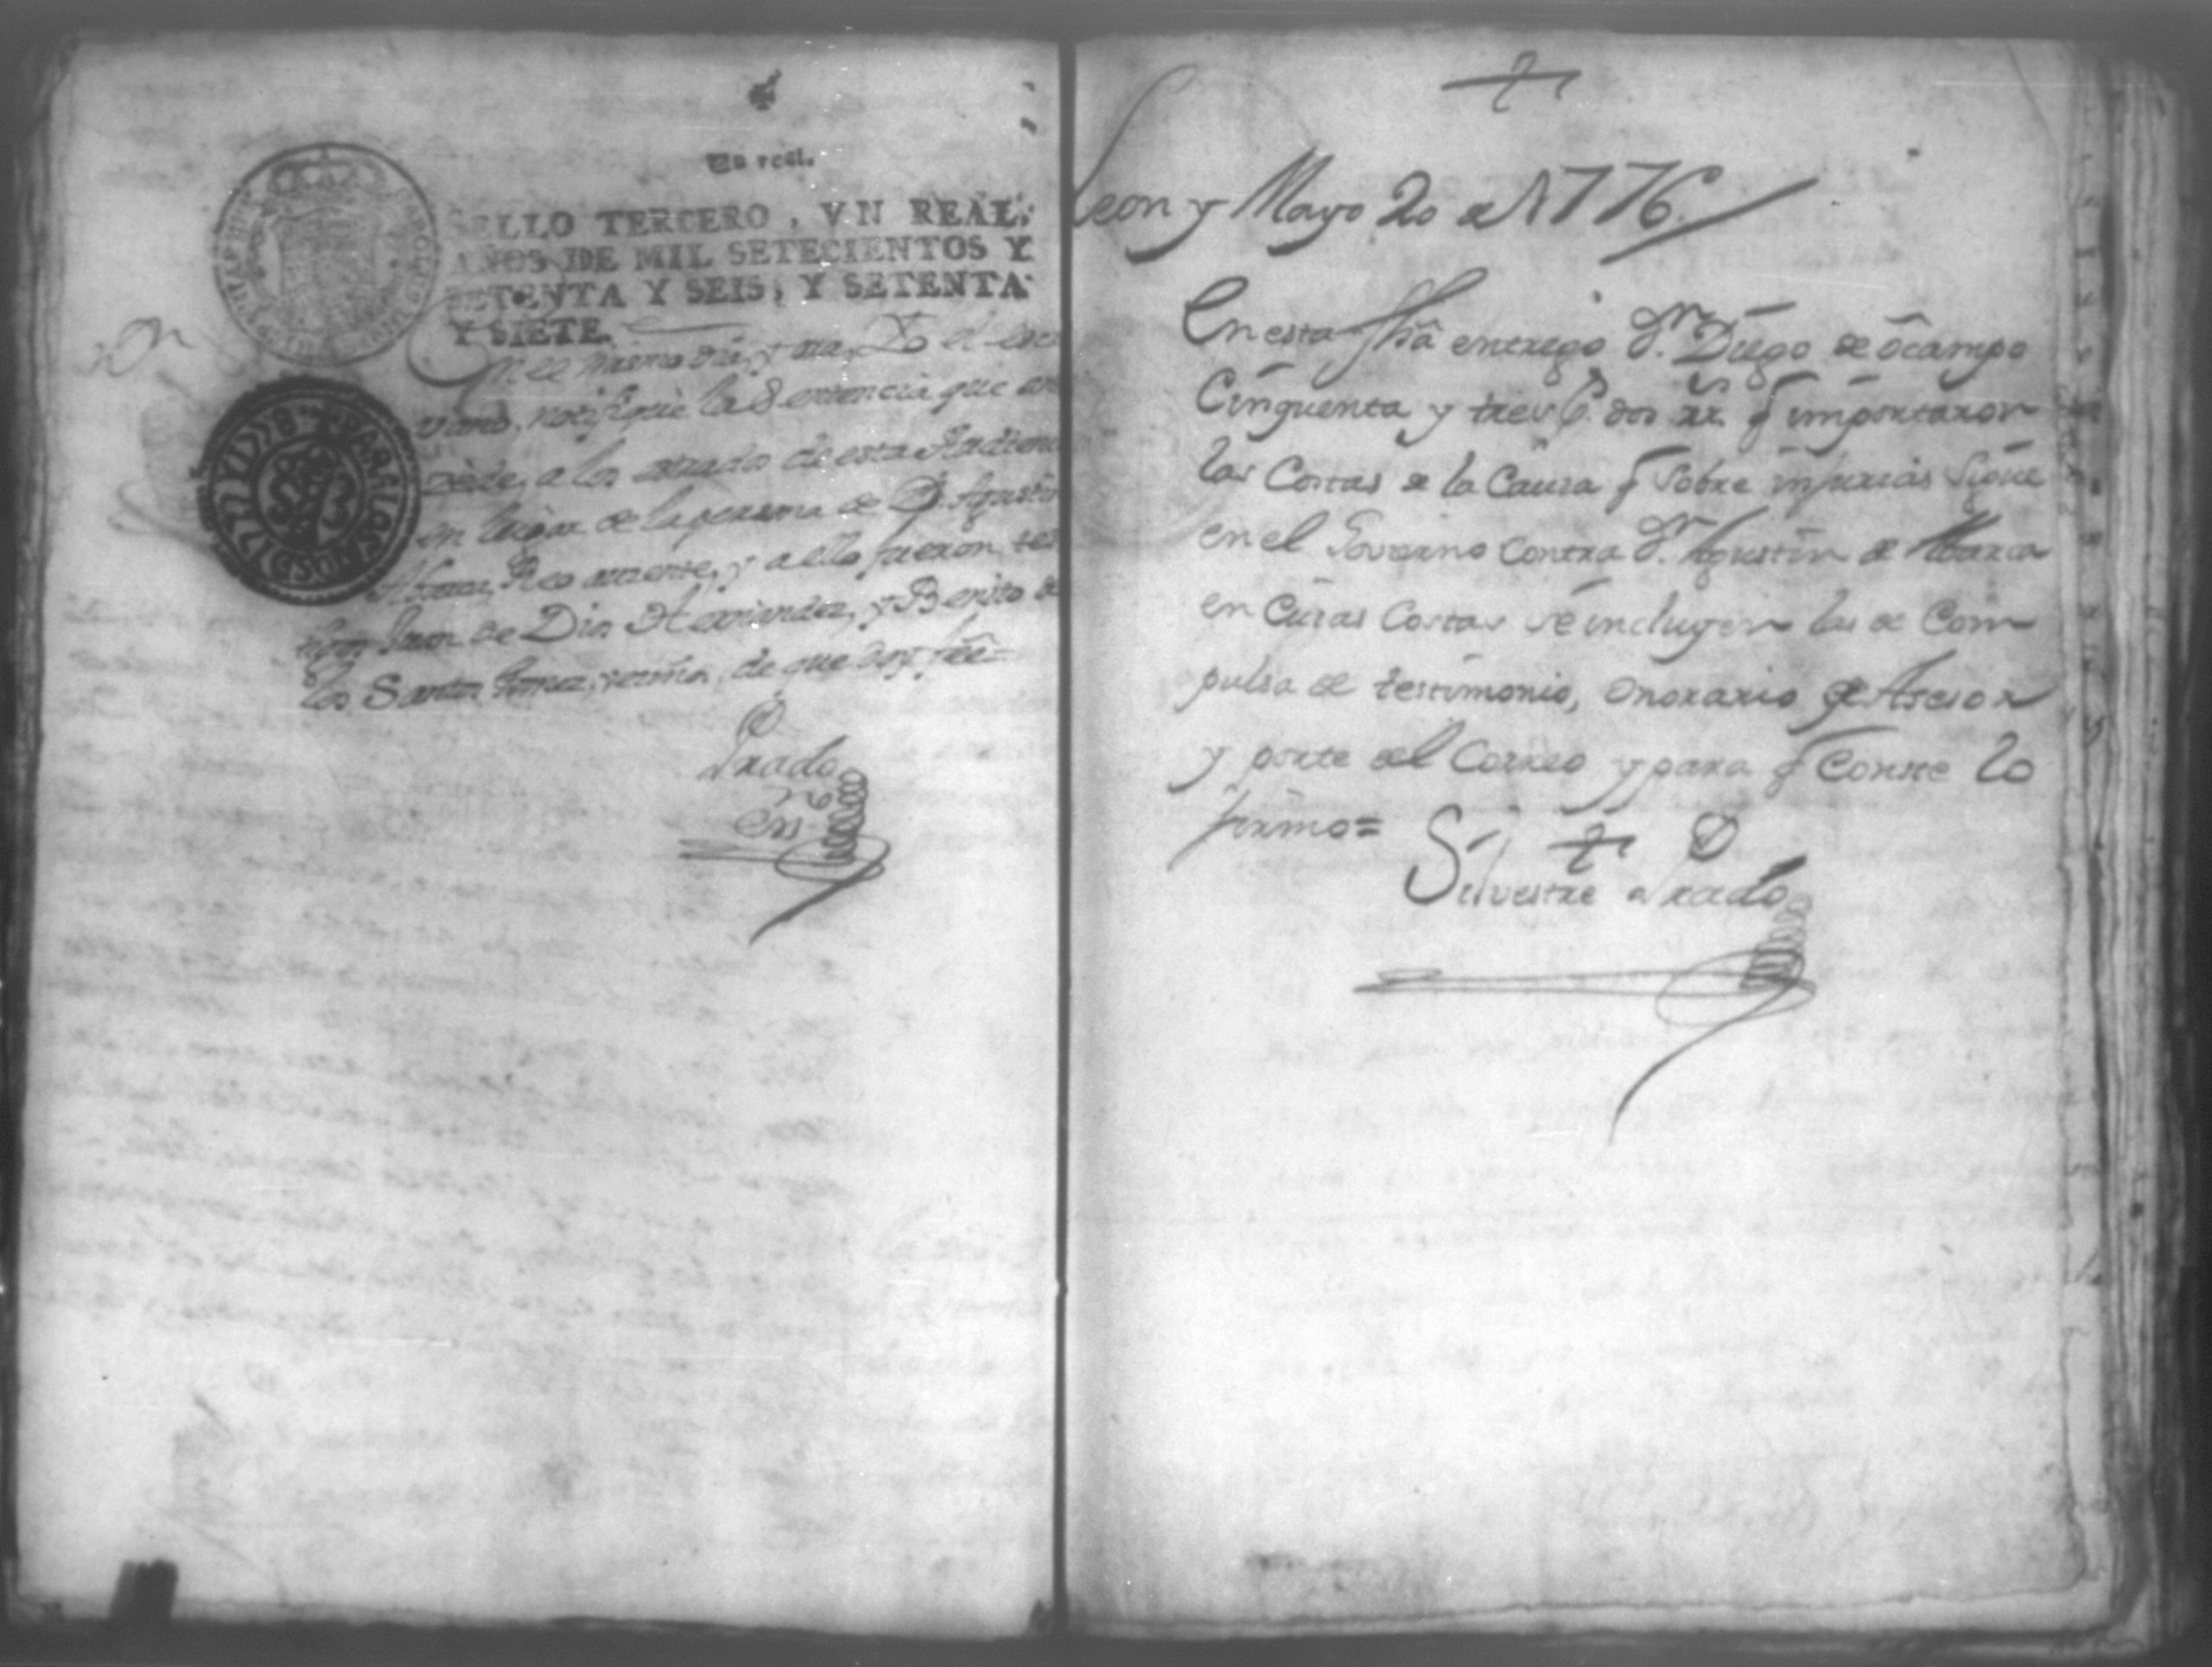 Un real.
SELLO TERCERO, VN REAL,
AÑOS DE MIL SETECIENTOS Y
SETENTA Y SEIS, Y SETENTA
Y SIETE.
En el mismo dia, y
vano, notifique la Sentencia que an
cede, a los estrados de esta Audien
en lugar de la persona de Dn. Agustin
Abarca Reo ausente, y a ello fueron tes
tigos Juan de Dios Hernandez, y Benito de
los Santos Gomez, vecinos, de que doy fee=
Prado
Leon y Mayo 20 de 1776
En esta fha entrego Dn. Diego de ocampo
Cinquenta y tres ps. dos rs. q importaron
las Costas de la Causa q sobre injurias sigue
en el Govierno contra Dn. Agustin de Abarca
en cuias Costas se incluyen las de Com
pulsa de testimonio, onorario de Asesor
y porte del Correo y para q Conste lo
firmo=
Silvestre Prado